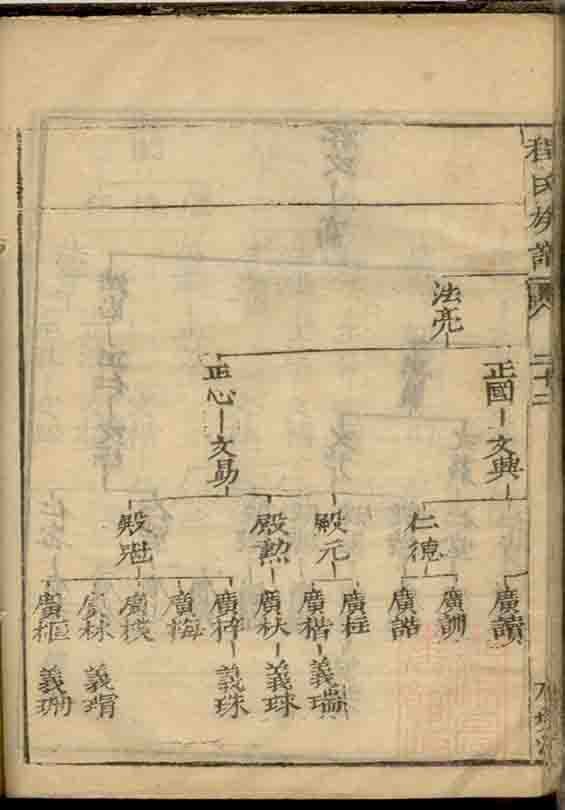 程氏族譜
二十二
法亮
正國 文興
正心 文易
仁德
殿元
殿勲
殿魁
廣讀
廣訓
廣諧
廣柱
廣楷 義瑞
廣秋 義球
廣梓 義珠
廣梅
廣模
廣林 義瑁
廣樞 義珊